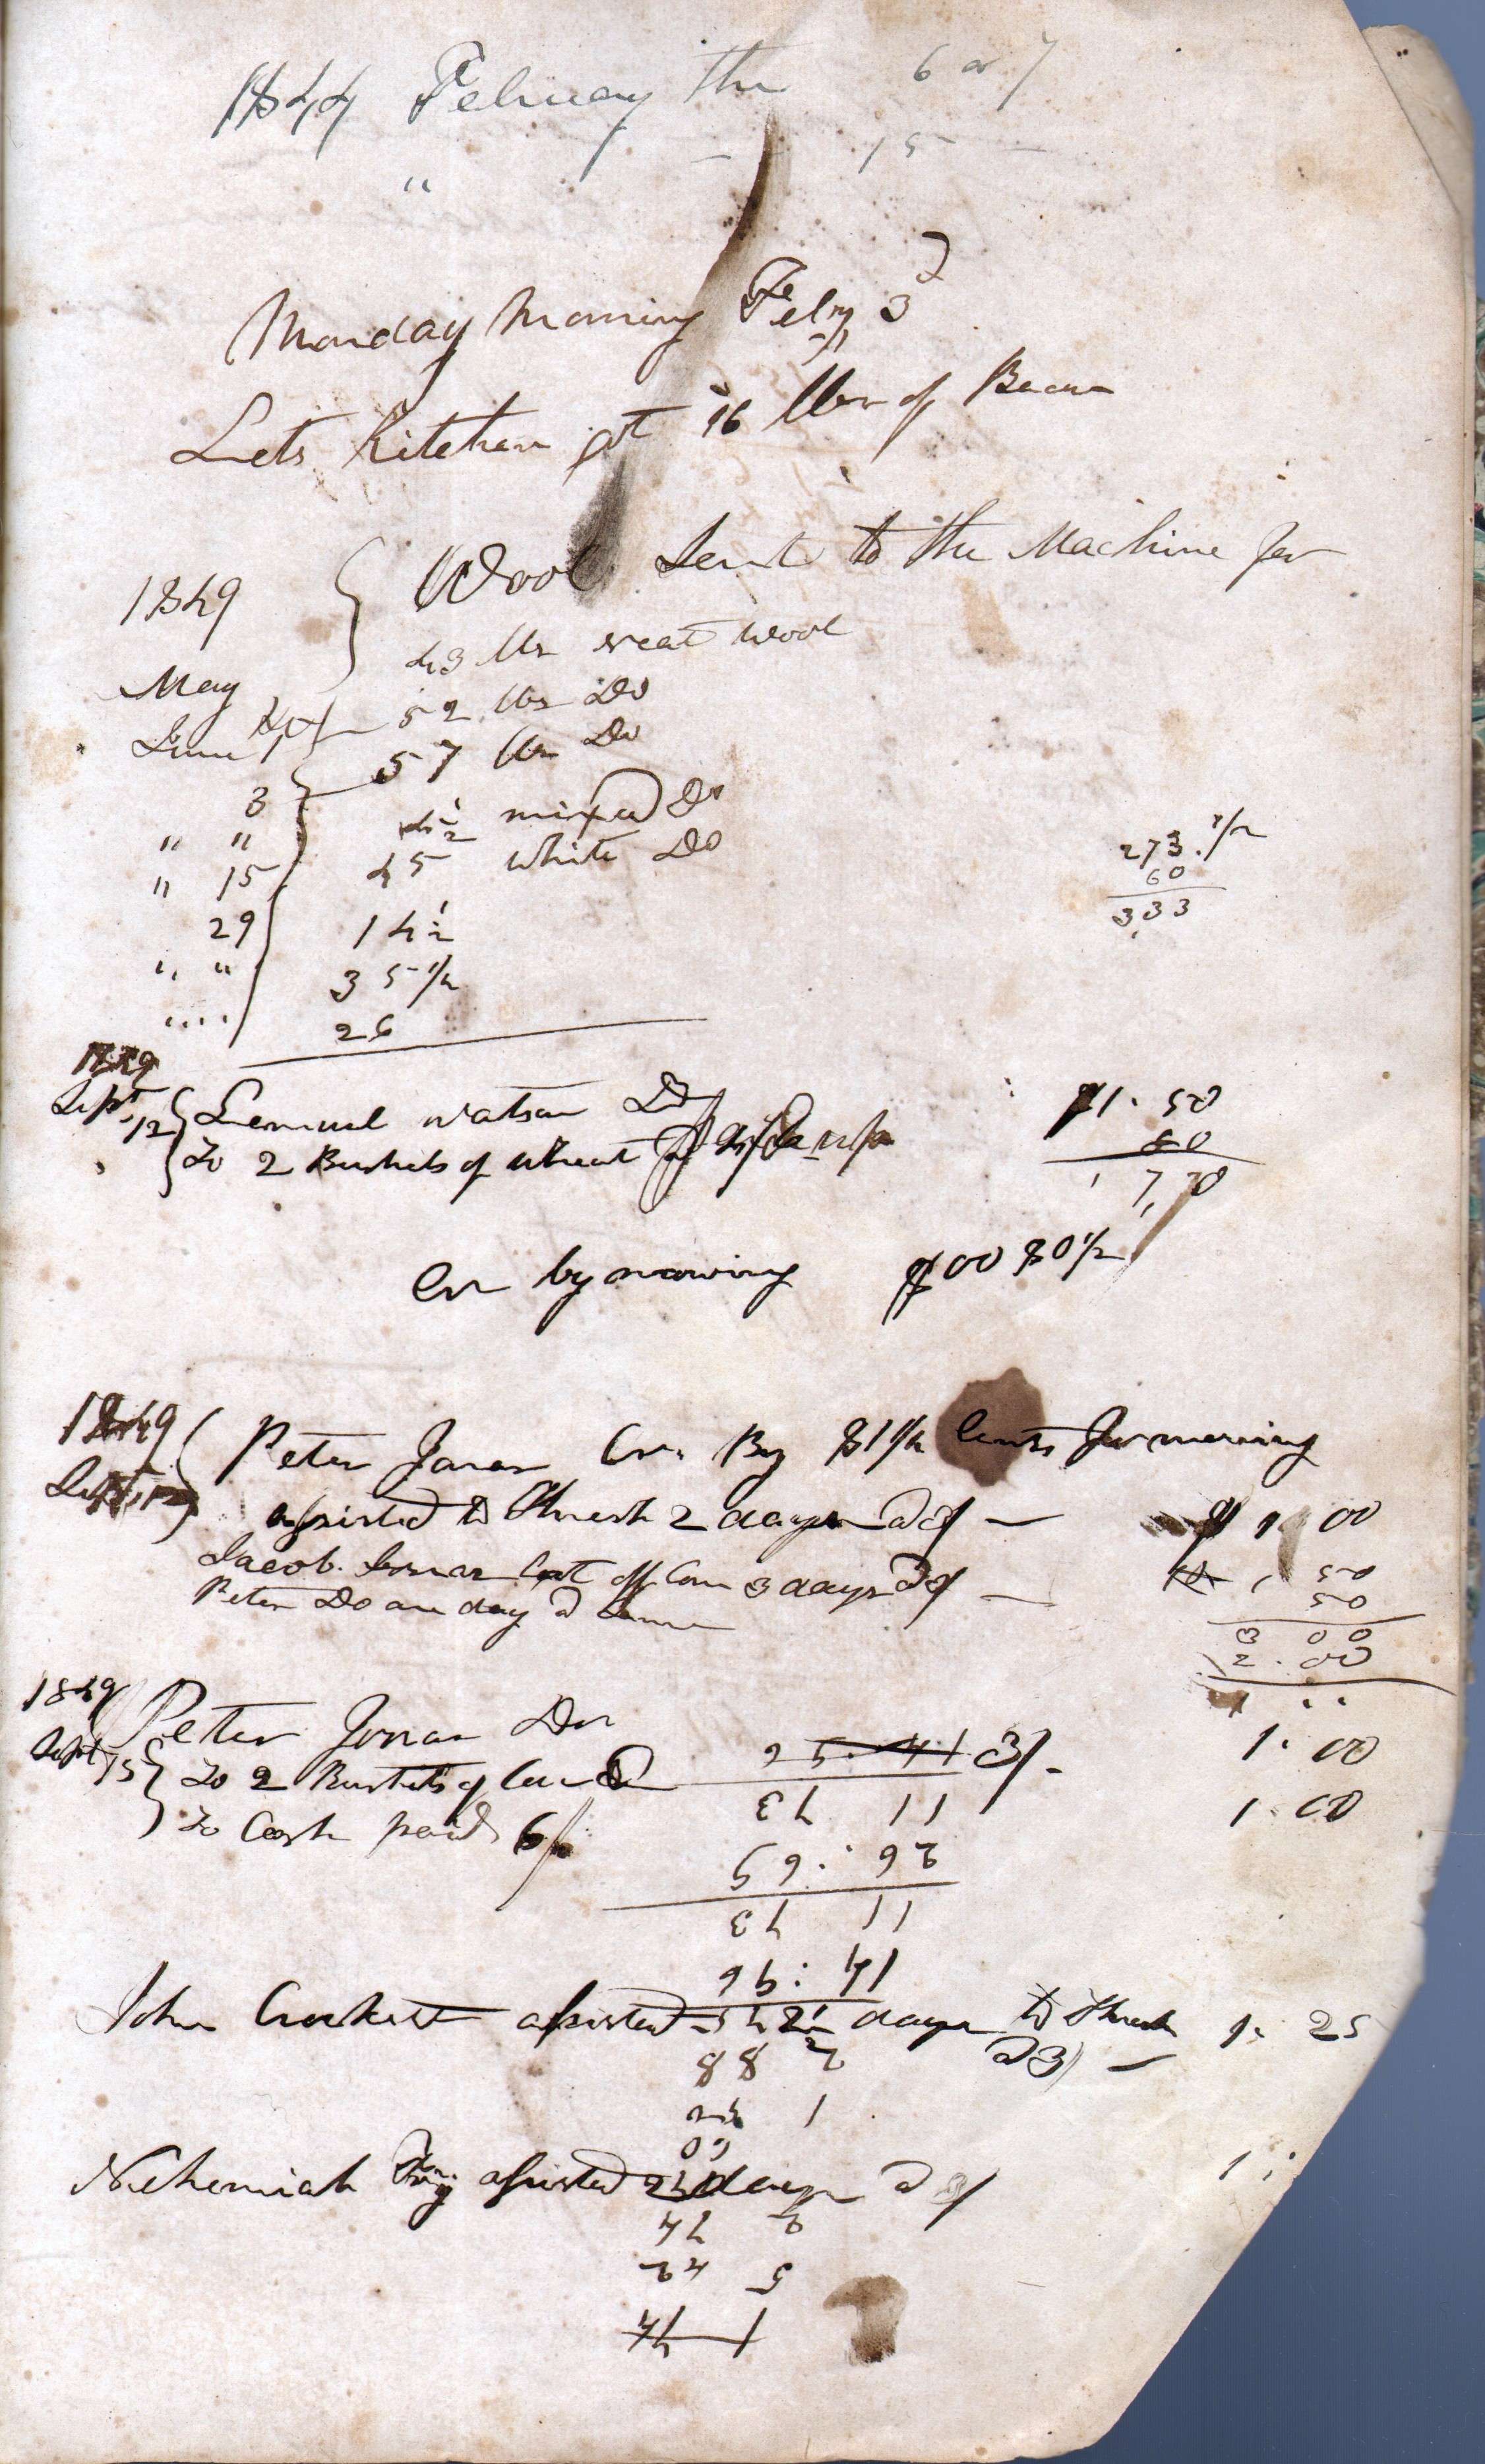 1844 Februay the 6 or 7
" — 15 —
Monday morning Feby 3d
Lets Kitchen got 16 lbs of Bacon
1849 Wool Sent to the Machine for
May 43 lbs neat wool
June 1 52 lbs Do
3 57 lbs Do
" " 4 1/2 mixed Do
" 15 45 white Do
29 14 1/2
" " 35 1/2
" " 26
273 1/2
60
333
1849
Sept 12 Lemuel Watson Dr
To 2 Bushels of wheat
$1.50
80
1 70
Cr by mowing $00 80 1/2
1849 Peter Jonas Cr. By 81 1/2 Cents for mowing
Sept 12 assisted to Thresh 2 days @ 3/ — $1 00
Jacob Jonas Cut off Corn 3 days @ 3/ — 1 50
Peter Do one day @ Same 50
3 00
2.00
1 " "
1849 Peter Jonas Dr
Sept 15 To 2 Bushels of Corn @ 3/- 1.00
To Cash paid 6/ 1.00
14: 96
11 73
26: 69
11 73
John Crockett assisted 2 1/2 days to Thresh 1. 25
@ 3/ —
2 88
1
Nehemiah assisted 2 days @ 3/ 1:
2 74
5 42
1 74